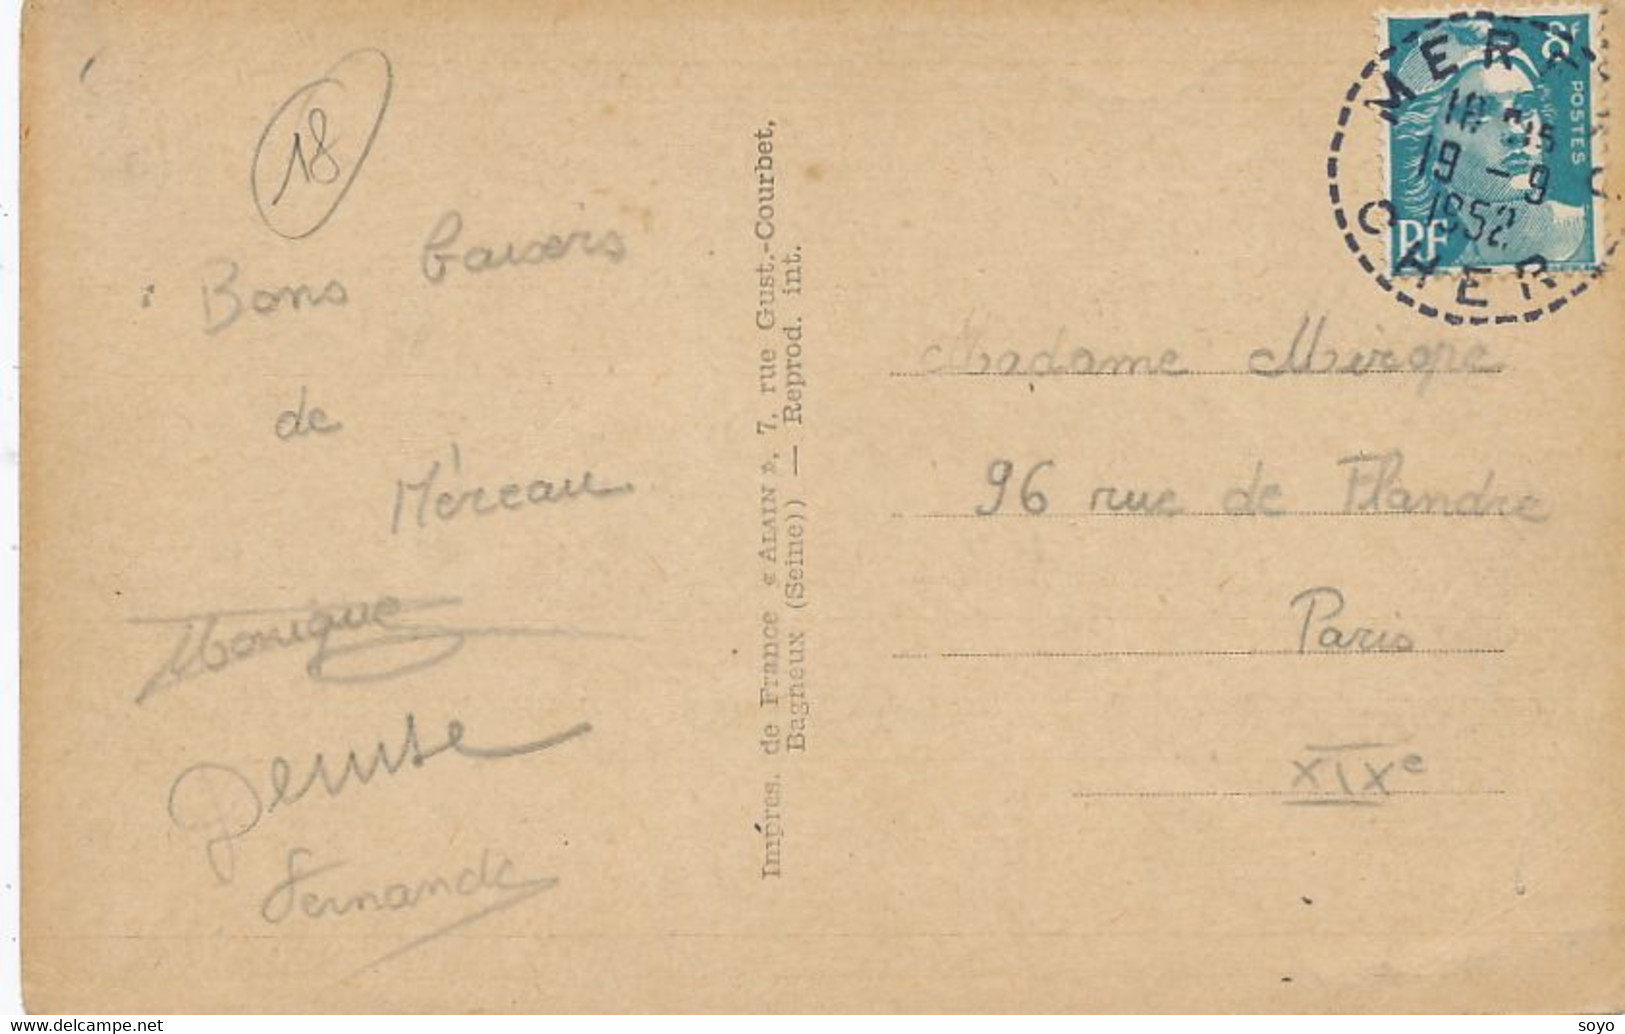 18
Bons baisers
de
Méreau
Monique
Denise
Fernande
Impres. de France « ALAIN », 7, rue Gust.-Courbet,
Bagneux (Seine)) — Reprod. int.
POSTES
RF
19 - 9
1952
CHER
Madame Mérope
96 rue de Flandre
Paris
XIXe
www.delcampe.net
soyo